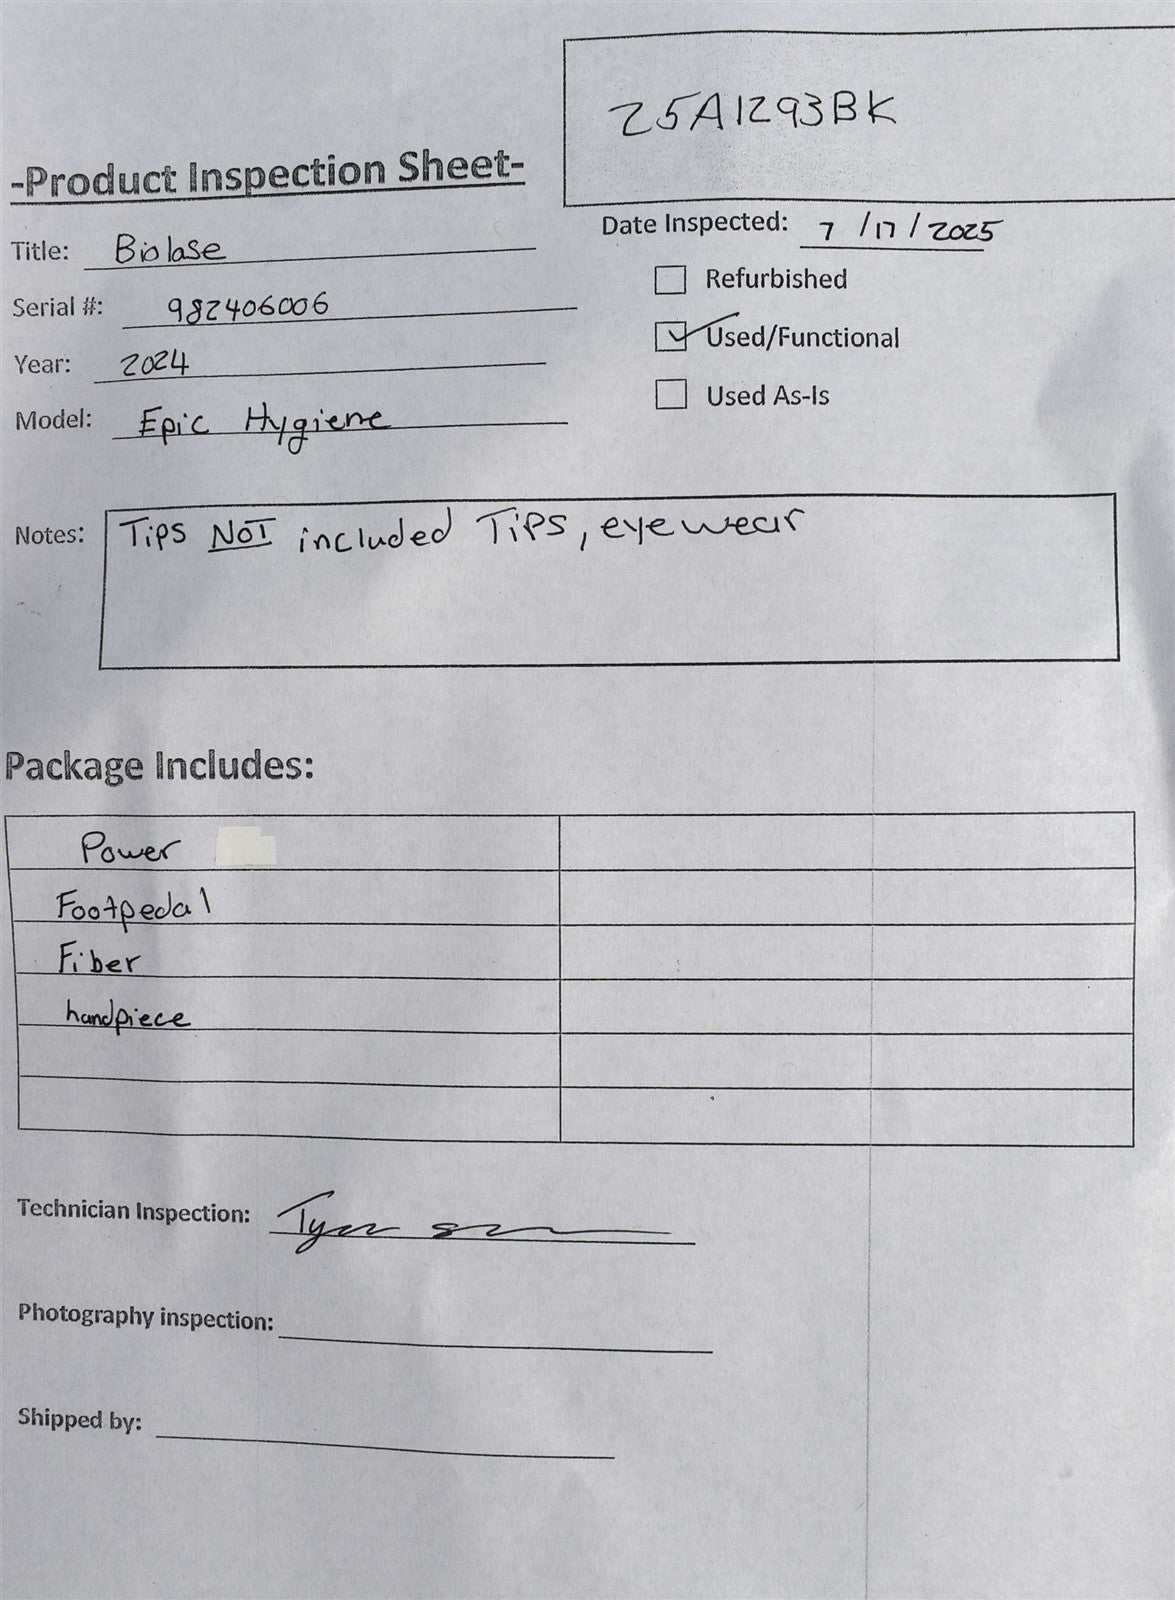 25A1293BK
-Product Inspection Sheet-
Date Inspected: 7/17/2025
Title: Biolase
Refurbished
Serial #: 982406006
Used/Functional
Year: 2024
Used As-Is
Model: Epic Hygiene
Notes: Tips NOT included Tips, eyewear
Package Includes:
Power
Footpedal
Fiber
handpiece
Technician Inspection:
Photography inspection:
Shipped by: